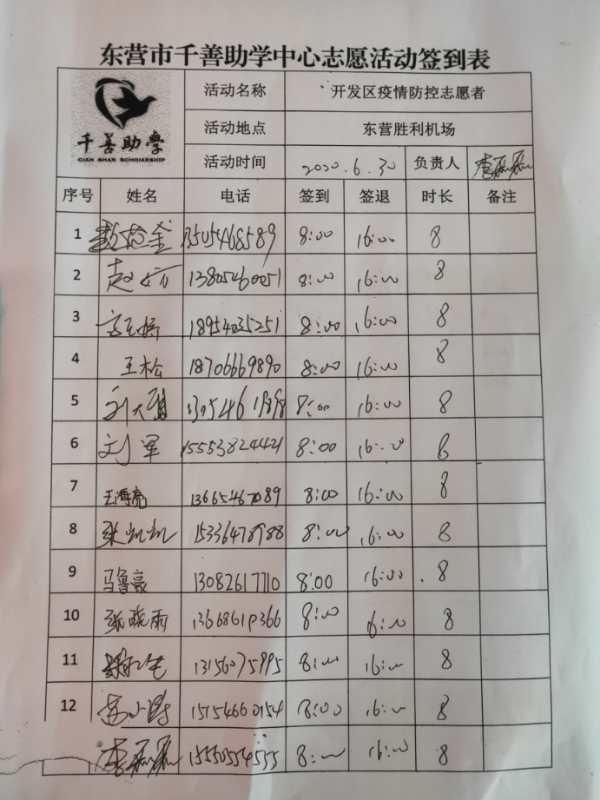 东营市千善助学中心志愿活动签到表
千善助学
QIAN SHAN SCHOLARSHIP
活动名称 开发区疫情防控志愿者
活动地点 东营胜利机场
活动时间 2020.6.30 负责人
序号 姓名 电话 签到 签退 时长 备注
1 13505468589 8:00 16:00 8
2 13805460051 8:00 16:00 8
3 18954035251 8:00 16:00 8
4 王松 18706669890 8:00 16:00 8
5 8:00 16:00 8
6 刘军 15553824421 8:00 16:00 8
7 王海亮 13665467089 8:00 16:00 8
8 张凯凯 15336478988 8:00 16:00 8
9 马鲁豪 13082617710 8:00 16:00 8
10 张晓雨 13668619366 8:00 16:00 8
11 13156075995 8:00 16:00 8
12 15154660154 8:00 16:00 8
15550554555 8:00 16:00 8